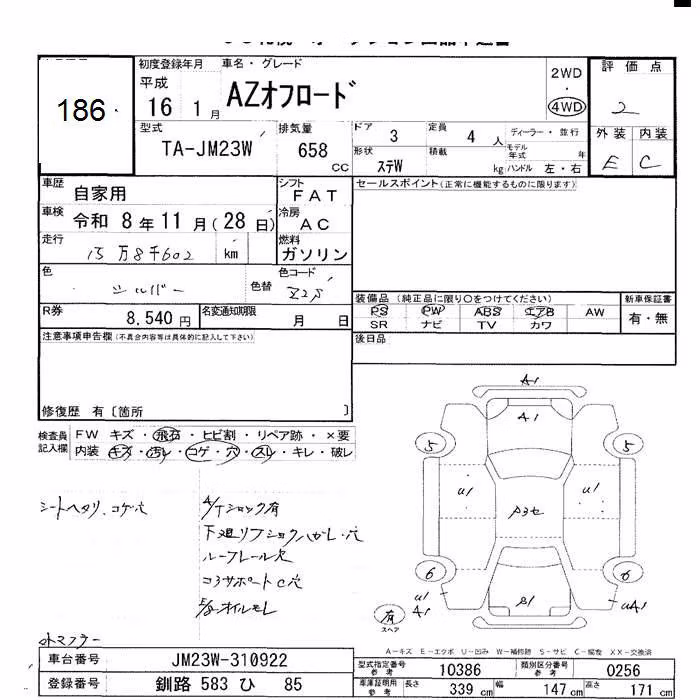 186
初度登録年月
平成
16 1月
車名・グレード
AZオフロード
2WD
4WD
評価点
2
型式
TA-JM23W
排気量
658
CC
ドア
3
定員
4人
ディーラー・並行
外装 内装
E C
形状
ステW
積載
kg
モデル年式
年
ハンドル 左・右
車歴
自家用
シフト
FAT
セールスポイント(正常に機能するものに限ります)
車検
令和 8年11月(28日)
冷房
AC
走行
15万8千602
km
燃料
ガソリン
色
シルバー
色替
色コード
Z2S
R券
8,540円
名変通知期限
月 日
装備品(純正品に限り○をつけてください)
新車保証書
PS PW ABS エアB AW
有・無
SR ナビ TV カワ
注意事項申告欄(不具合内容等は具体的に記入して下さい)
後日品
修復歴 有〔箇所 〕
検査員記入欄
FW キズ・飛石・ヒビ割・リペア跡・×要
内装 キズ・汚レ・コゲ・穴・スレ・キレ・破レ
シートヘタリ、コゲ穴
A/Tショック有
下廻リフショクハガレ・穴
ルーフレール欠
コアサポートC穴
オイルモレ
外マフラー
A1
A1
5
5
U1
U1
6
6
U1
A1
UA1
有
スペア
A-キズ E-エクボ U-凹み W-補修跡 S-サビ C-腐食 XX-交換済
車台番号
JM23W-310922
登録番号
釧路 583 ひ 85
型式指定番号
参考
10386
類別区分番号
参考
0256
車庫証明用
参考
長さ
339 cm
幅
147 cm
高さ
171 cm